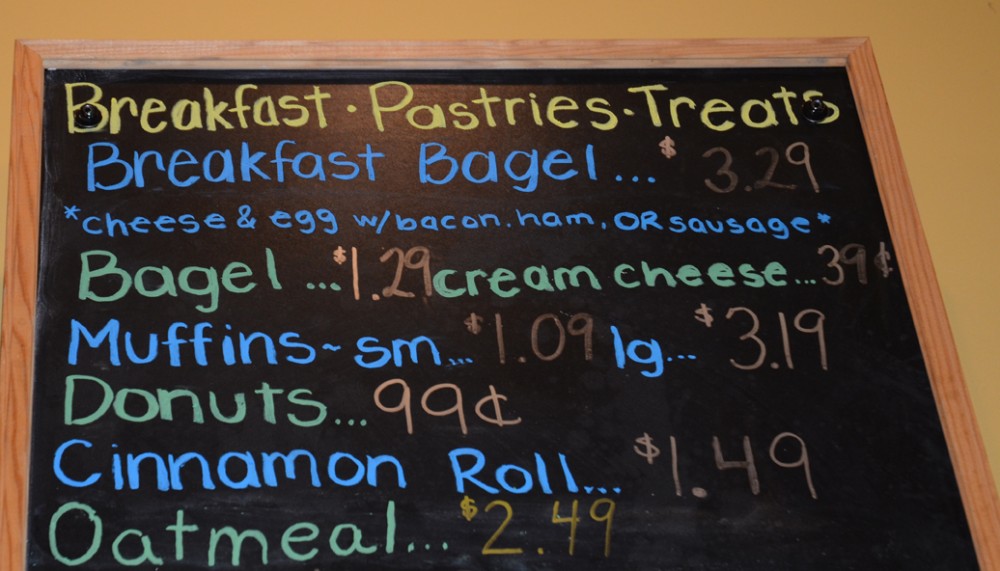 Breakfast · Pastries · Treats
Breakfast Bagel... $3.29
*cheese & egg w/bacon. ham, OR sausage*
Bagel ...$1.29 cream cheese...39¢
Muffins~sm... $1.09 lg... $3.19
Donuts... 99¢
Cinnamon Roll... $1.49
Oatmeal... $2.49